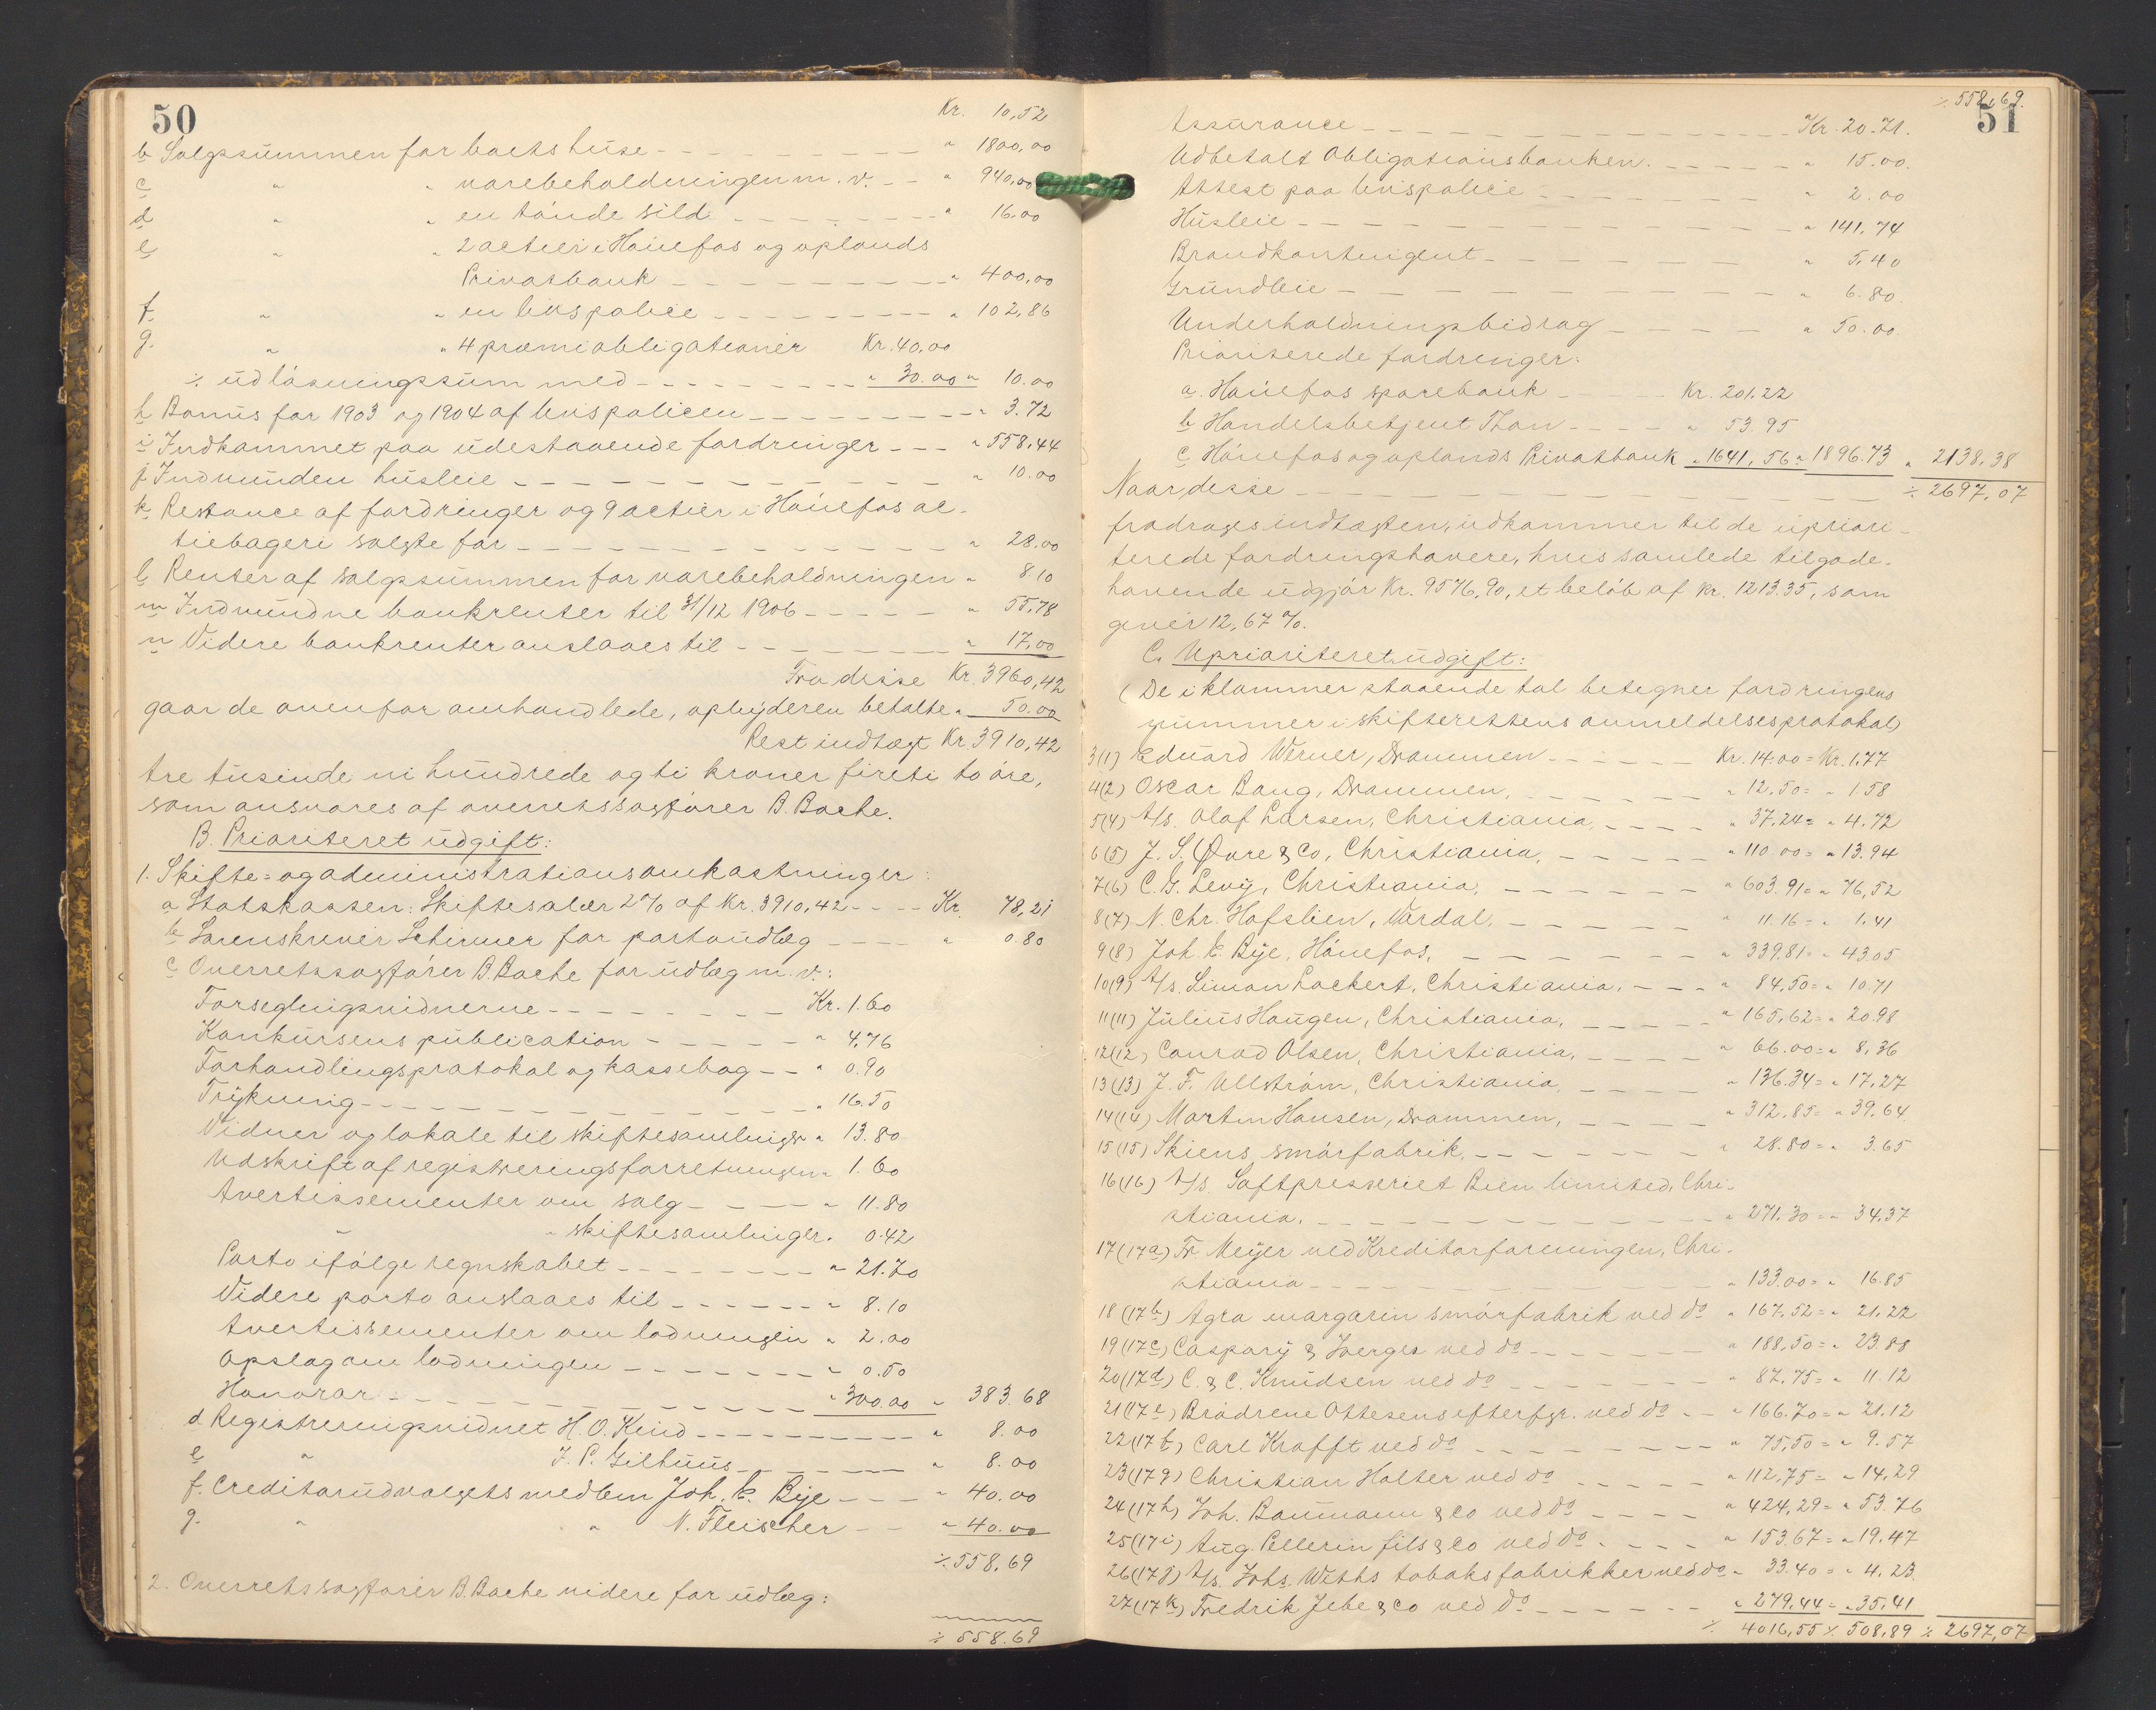 50
Kr. 10,52
b Salgssummen for boets huse - - - " 1800,00
c " " varebeholdningen m. v. - - " 940,00
d " " en tønde sild - - - " 16.00
e " " 2 actier i Hønefos og oplands
Privatbank - - - " 400,00
f. " " en livspolice - - - " 102,86
g. " " 4 præmieobligationer Kr. 40,00
÷ udløsningssum med - - - " 30.00 " 10.00
h Bonus for 1903 og 1904 af livspolicen - - - " 3.72
i Indkommet paa udestaaende fordringer - - - " 558,44
j. Indvunden husleie - - - " 10.00
k Restance af fordringer og 9 actier i Hønefos ac-
tiebageri solgte for - - - " 28.00
l Renter af salgssummen for varebeholdningen " 8.10
m Indvundne bankrenter til 31/12 1906 - - - " 55,78
n Videre bankrenter anslaaes til - - - " 17,00
Fra disse Kr. 3960,42
gaar de ovenfor omhandlede, opbyderen betalte " 50.00
Rest indtægt Kr. 3910,42
tre tusinde ni hundrede og ti kroner firti to øre,
som ansvares af overretssagfører B. Bache.
B. Prioriteret udgift:
1. Skifte= og administrationsomkostninger:
a Statskassen: Skiftesalær 2% af Kr. 3910,42 - - - Kr. 78,21
b Sorenskriver Schirmer for portoudlæg - - - " 0.80
c Overretssagfører B. Bache for udlæg m. v.:
Forseglingsvidnerne - - - Kr. 1.60
Konkursens publication - - - " 4,76
Forhandlingsprotokol og kassebog - - " 0.90
Trykning - - - " 16.50
Vidner og lokale til skiftesamlinger " 13.80
Udskrift af registreringsforretningen " 1.60
Avertissementer om salg - - - " 11.80
" " skiftesamlinger " 0.42
Porto ifølge regnskabet - - - " 21.70
Videre porto anslaaes til - - - " 8.10
Avertissementer om lodningen " 2.00
Opslag om lodningen - - - " 0.50
Honorar - - - " 300.00 " 383.68
d Registreringsvidnet H. O. Kind - - - " 8.00
e " J. P. Gilhuus - - - " 8.00
f. Creditorudvalgets medlem Joh. E. Bye - - - " 40.00
g. " " N. Fleischer - - " 40.00
÷ 558,69
2. Overretssagfører B. Bache videre for udlæg:
÷ 558.69
÷ 558,69.
51
Assurance - - - Kr. 20.71.
Udbetalt Obligationsbanken. - - - " 15.00.
Attest paa livspolice - - - " 2.00
Husleie - - - " 141,74
Brandkontingent - - - " 5,40
Grundleie - - - " 6.80.
Underholdningsbidrag - - - " 50.00.
Prioriterede fordringer:
a. Hønefos sparebank - - - Kr. 201.22
b Handelsbetjent Thon - - - " 53.95
c Hønefos og oplands Privatbank " 1641,56 " 1896.73 " 2138,38
Naar disse - - - ÷ 2697,07
fradrages indtægten, udkommer til de upriori-
terede fordringshavere, hvis samlede tilgode-
havende udgjør Kr. 9576,90, et beløb af Kr. 1213.35, som
giver 12,67 %.
C. Uprioriteret udgift:
(De i klammer staaende tal betegner fordringens
nummer i skifterettens anmeldelsesprotokol)
3(1) Eduard Werner, Drammen - - - Kr. 14.00 = Kr. 1,77
4(2) Oscar Baug, Drammen, - - - " 12,50 = " 1.58
5(4) A/s. Olaf Larsen, Christiania - - - " 37.24 = " 4.72
6(5) J. S. Øvre & Co, Christiania, - - - " 110.00 = " 13.94
7(6) C. G. Levy, Christiania, - - - " 603.91 = " 76,52
8(7) N. Chr. Hofslien, Vardal, - - - " 11.16 = " 1.41
9(8) Joh. E. Bye, Hønefos, - - - " 339.81 = " 43.05
10(9) A/s. Simon Lockert, Christiania, - - - " 84,50 = " 10.71
11(11) Julius Haugen, Christiania, - - - " 165,62 = " 20.98
12(12) Conrad Olsen, Christiania, - - - " 66.00 = " 8,36
13(13) J. F. Ullstrøm, Christiania - - - " 136.34 = " 17,27
14(14) Martin Hansen, Drammen, - - - " 312,85 = " 39,64
15(15) Skiens smørfabrik, - - - " 28.80 = " 3.65
16(16) A/s. Saftpresseriet Bien limited, Chri-
stiania, - - - " 271.30 = " 34,37
17(17a) Fr. Meyer ved Kreditorforeningen, Chri-
stiania - - - " 133.00 = " 16.85
18(17b) Agra margarin smørfabrik ved do " 167,52 = " 21,22
19(17c) Caspary & Sverges ved do - - - " 188,50 = " 23.88
20(17d) C. & C. Knudsen ved do - - - " 87,75 = " 11.12
21(17e) Brødrene Ottesens efterfgr. ved do - - " 166.70 = " 21.12
22(17f) Carl Krafft ved do - - - " 75,50 = " 9.57
23(17g) Christian Holter ved do - - - " 112,75 = " 14,29
24(17h) Joh. Baumann & Co ved do - - - " 424,29 = " 53.76
25(17i) Aug. Pellerin fils & Co ved do - - - " 153.67 = " 19.47
26(17j) A/s. Johs. Withs tobaksfabrikker ved do " 33.40 = " 4.23
27(17k) Fredrik Jebe & Co ved do - - - " 279,44 = " 35,41
÷ 4016,55 ÷ 508,89 ÷ 2697,07